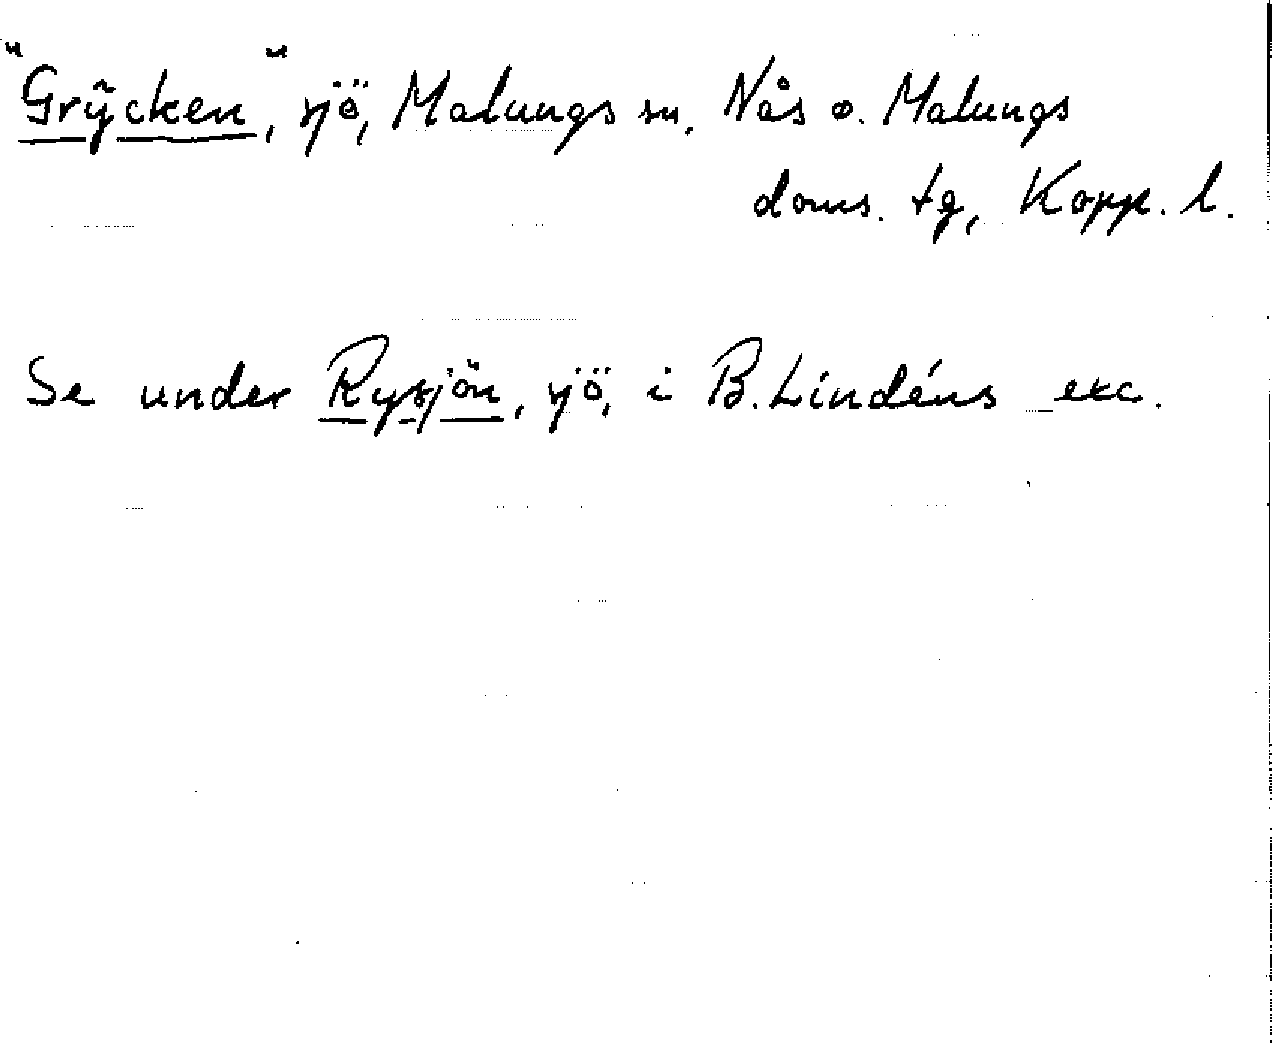 "Grycken", sjö, Malungs sn, Nås o. Malungs
doms. tg, Kopp. l.
Se under Rysjön, sjö, i B. Lindéns exc.